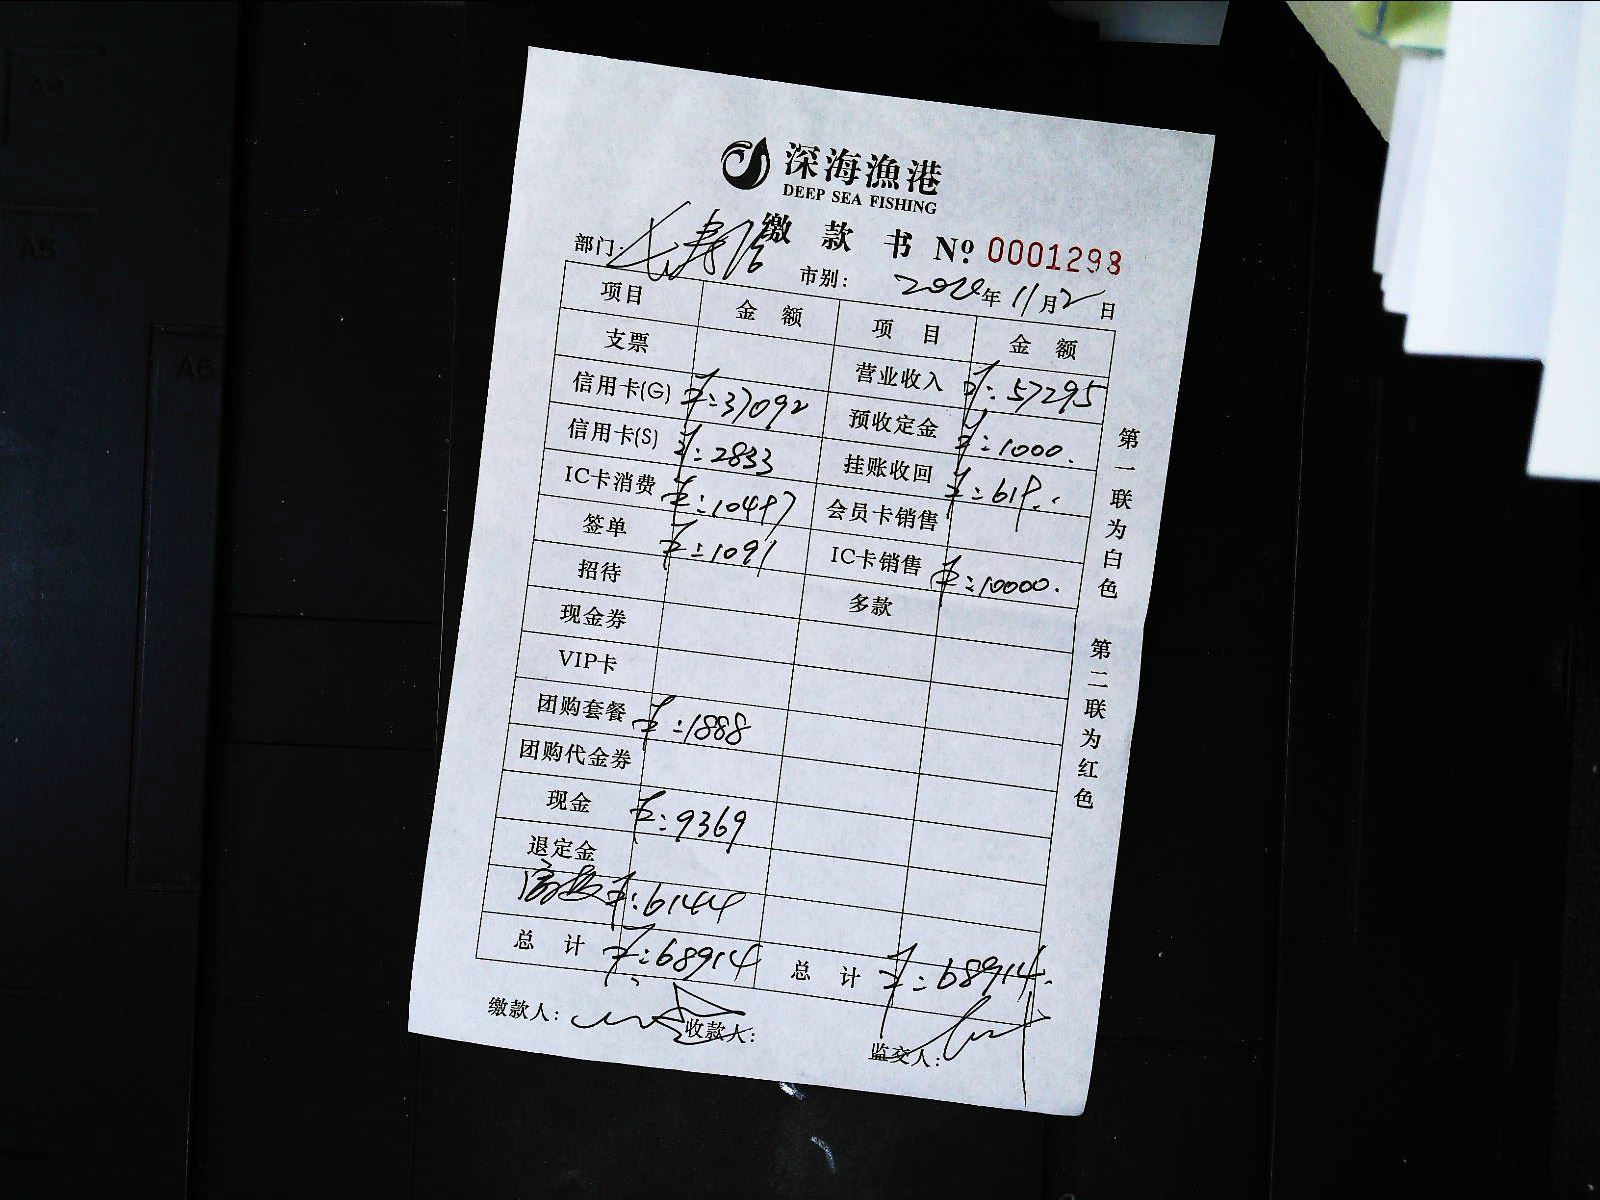 深海漁港
DEEP SEA FISHING
缴 款 书 Nº 0001293
部门: 长寿路 市别: 2020年 11月2日
项目 金 额 项 目 金 额
支票 营业收入 ¥:57295
信用卡(G) ¥:37092 预收定金 ¥:1000.
信用卡(S) ¥:2833 挂账收回 ¥:619.
IC卡消费 ¥:10497 会员卡销售
签单 ¥:1091 IC卡销售 ¥:10000.
招待 多款
现金券
VIP卡
团购套餐 ¥:1888
团购代金券
现金 ¥:9369
退定金
¥:6144
总 计 ¥:68914 总 计 ¥:68914.
缴款人: 收款人: 监交人:
第一联为白色 第二联为红色
A4
A5
A6